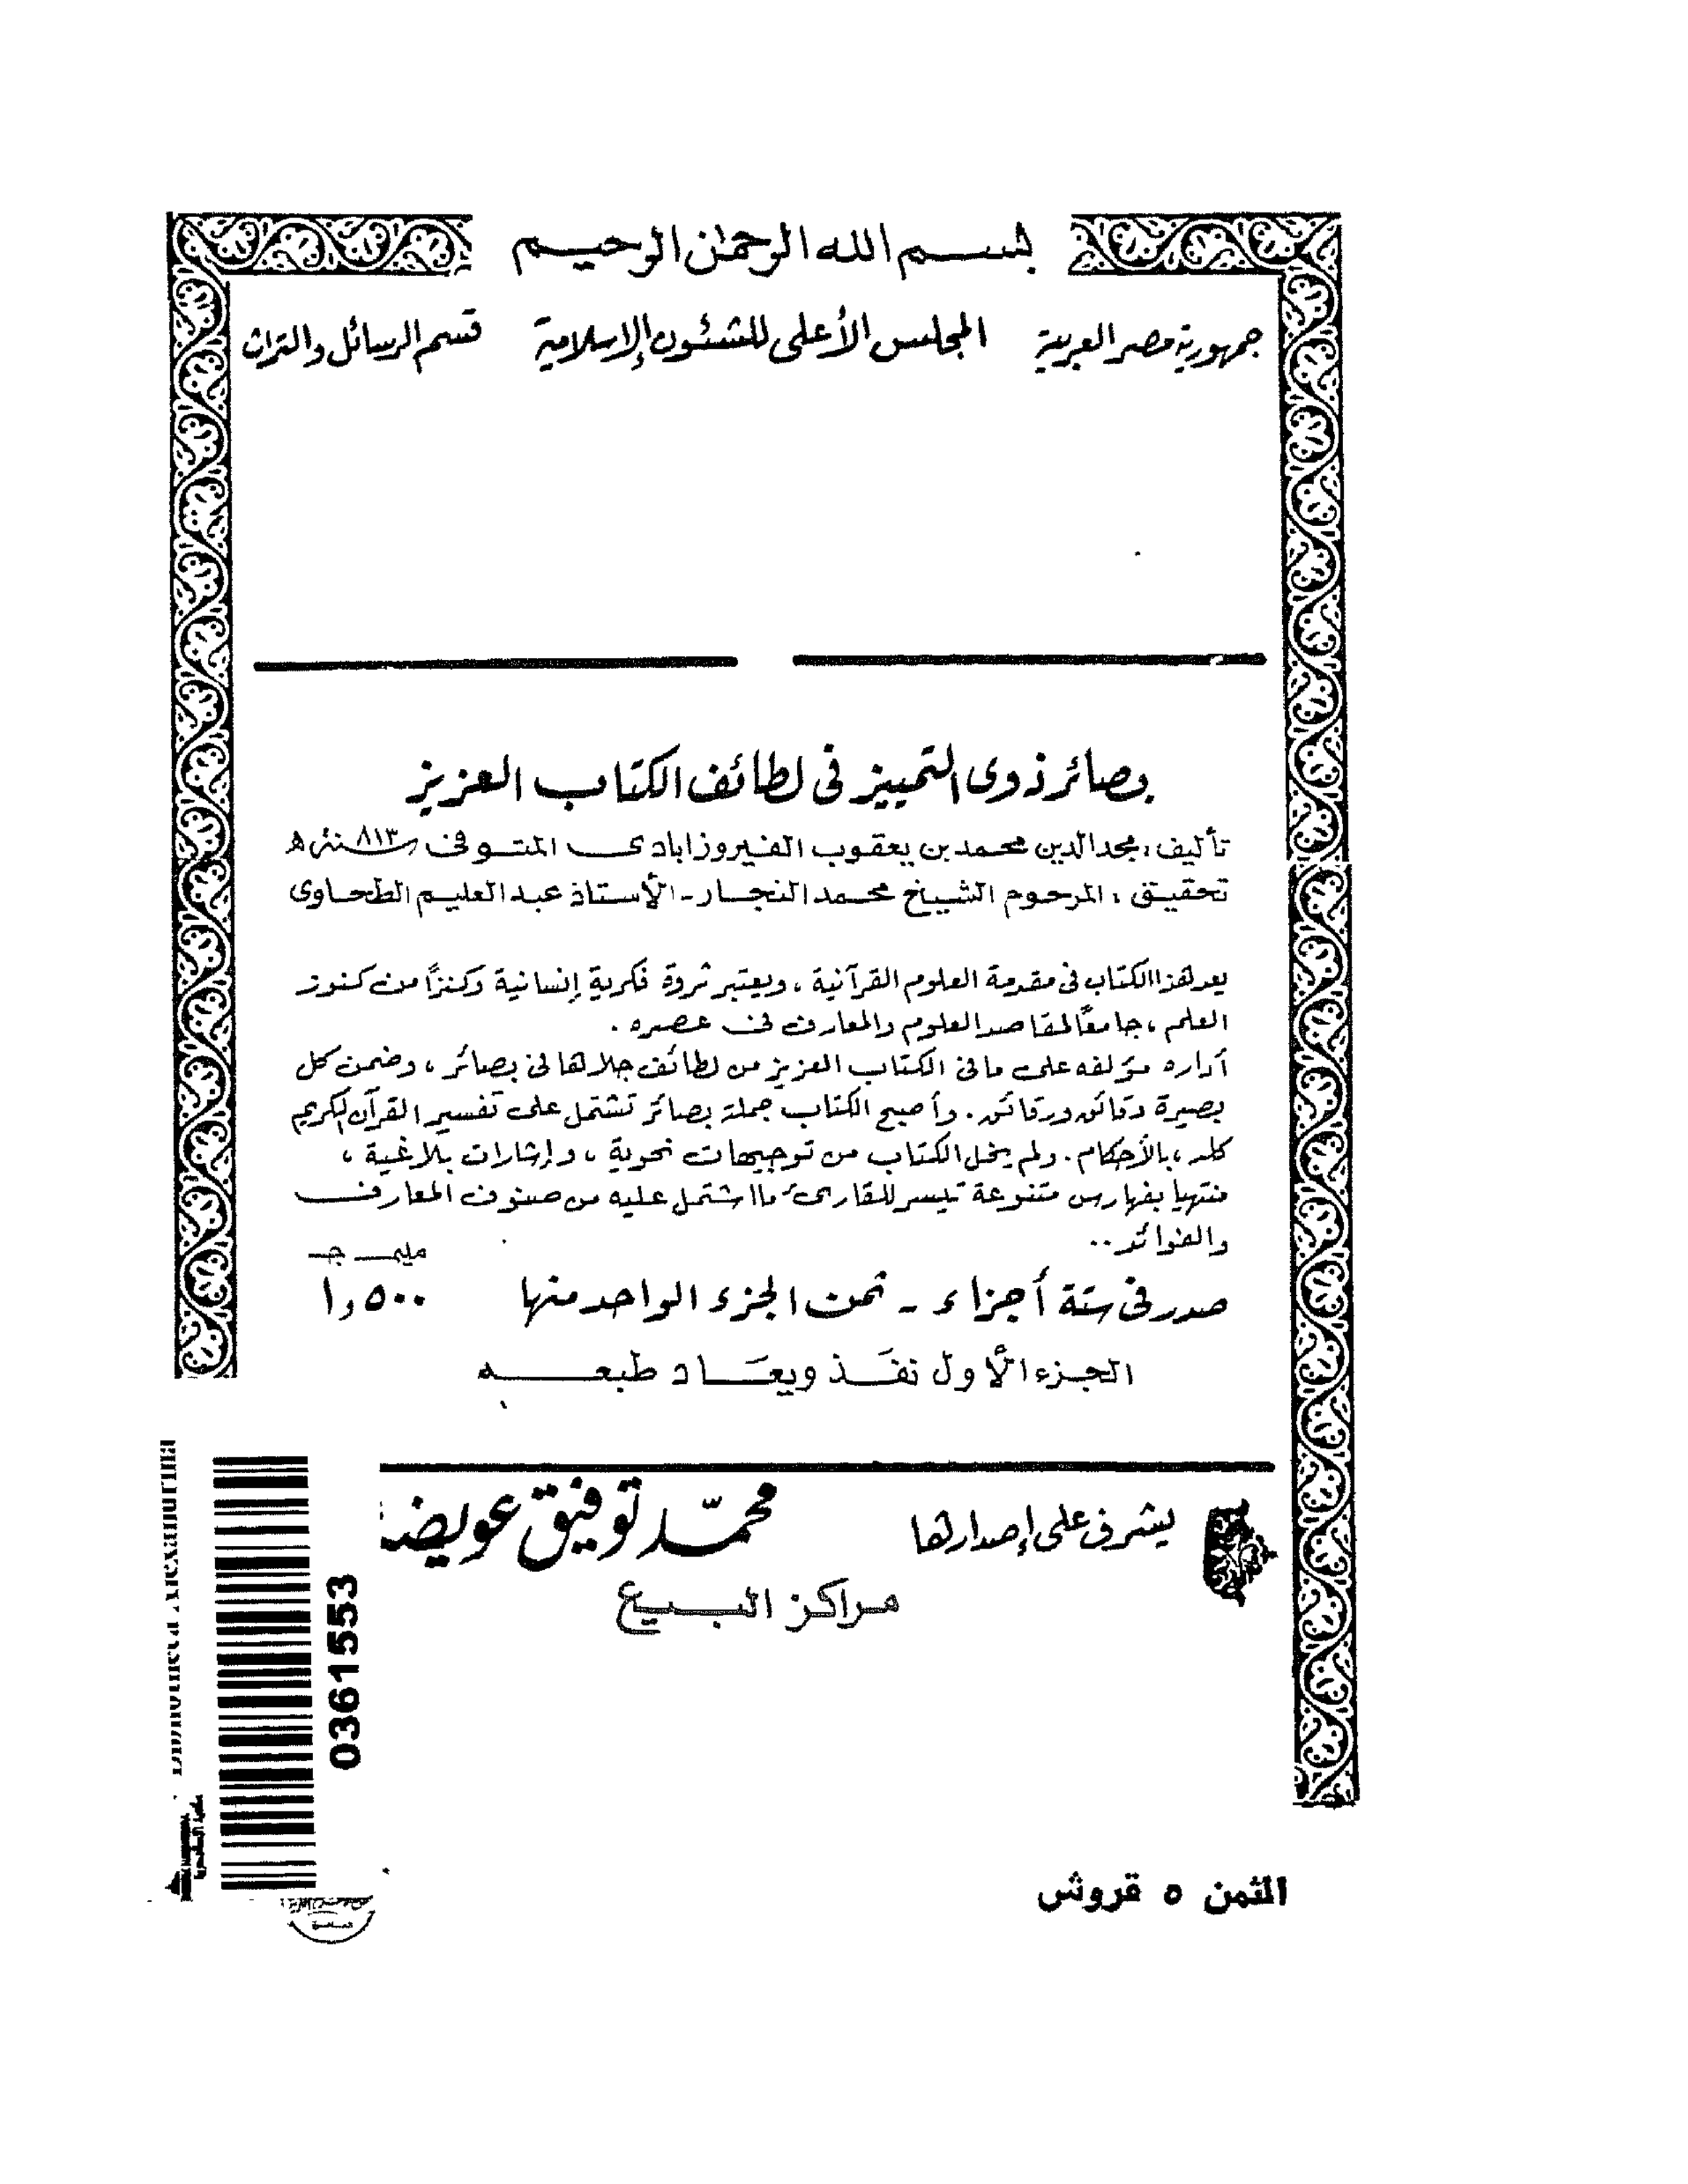 بسم الله الرحمن الرحيم
جمهورية مصر العربية المجلس الأعلى للشئون الإسلامية قسم الرسائل والتراث
بصائر ذوى التمييز فى لطائف الكتاب العزيز
تأليف : مجد الدين محمد بن يعقوب الفيروزابادى المتوفى سنة ٨١٣ هـ
تحقيق : المرحوم الشيخ محمد النجار - الأستاذ عبد العليم الطحاوى
يعد هذا الكتاب فى مقدمة العلوم القرآنية ، ويعتبر ثروة فكرية إنسانية وكنزاً من كنوز
العلم ، جامعاً لمقاصد العلوم والمعارف فى عصره .
أداره مؤلفه على ما فى الكتاب العزيز من لطائف جلاها فى بصائر ، وضمن كل
بصيرة دقائق ورقائق . وأصبح الكتاب جملة بصائر تشتمل على تفسير القرآن الكريم
كله ، بالأحكام . ولم يخل الكتاب من توجيهات نحوية ، وإشارات بلاغية ،
منتهيا بفهارس متنوعة تيسر للقارىء ما اشتمل عليه من صنوف المعارف
والفوائد ..
مليم جـ
صدر فى ستة أجزاء - ثمن الجزء الواحد منها ٥٠٠ و١
الجزء الأول نفَذ ويعَاد طبعه
يشرف على إصدارها محمّد توفيق عويضة
مراكز البيع
0361553
الثمن ٥ قروش